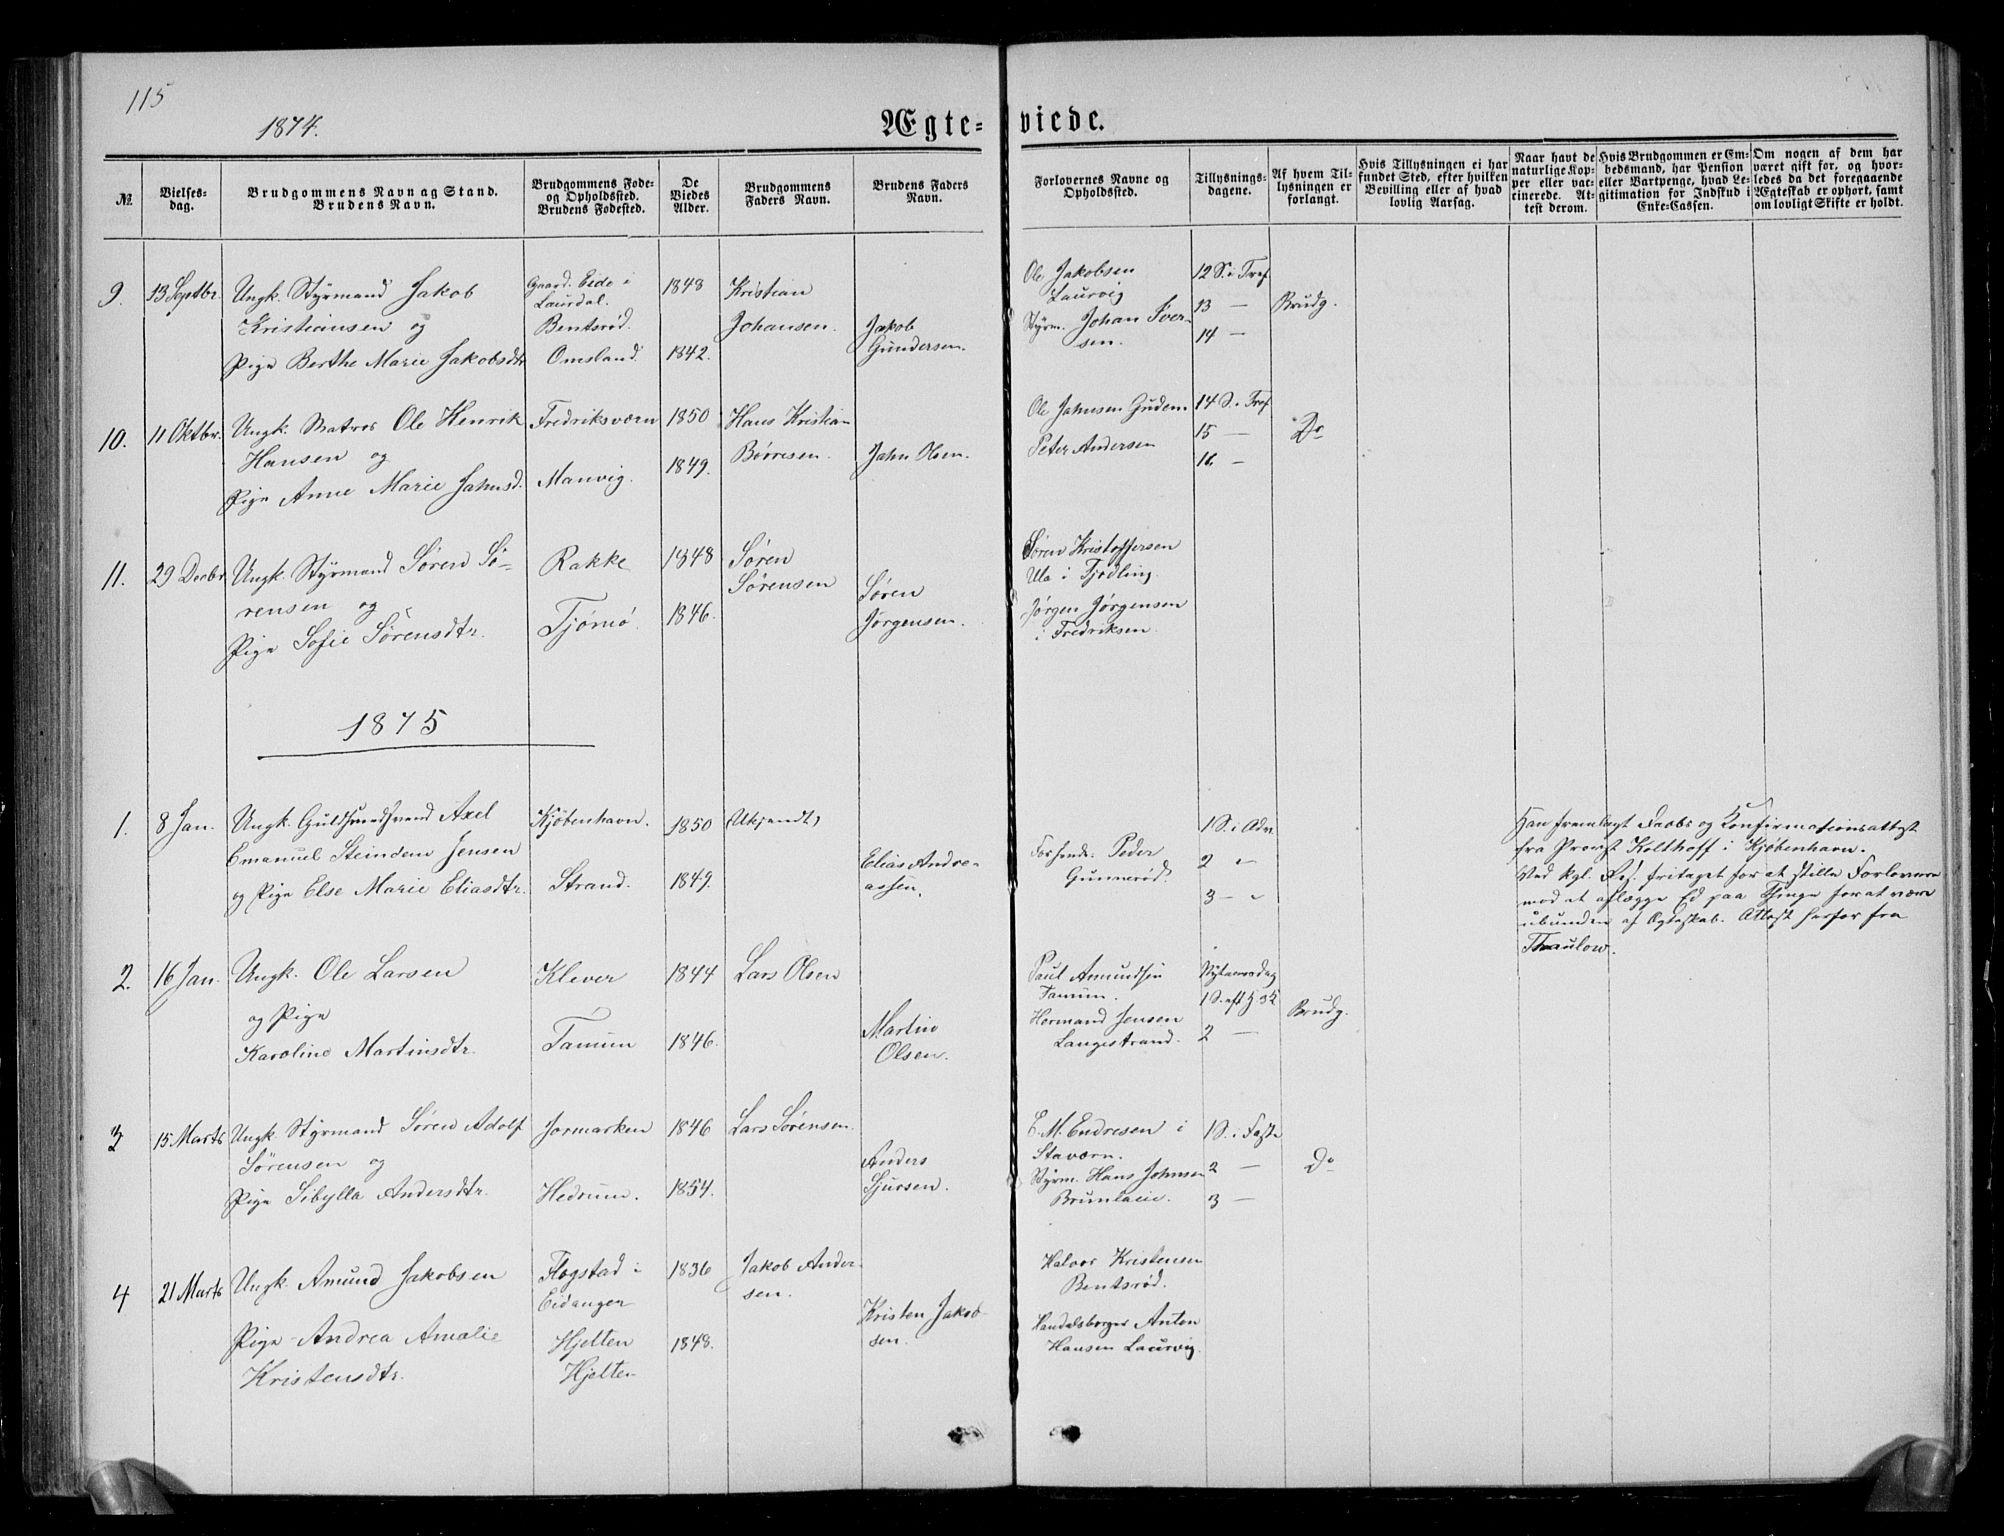 115
1874.
Ægte-viede.
№
Vielses-
dag.
Brudgommens Navn og Stand.
Brudens Navn.
Brudgommens Føde-
og Opholdssted.
Brudens Fødested.
De
Viedes
Alder.
Brudgommens
Faders Navn.
Brudens Faders
Navn.
Forlovernes Navne og
Opholdssted.
Tillysnings-
dagene.
Af hvem Til-
lysningen er
forlangt.
Hvis Tillysningen ei har
fundet Sted, efter hvilken
Bevilling eller af hvad
lovlig Aarsag.
Naar havt de
naturlige Kop-
per eller vac-
cinerede. At-
test derom.
Hvis Brudgommen er Em-
bedsmand, har Pension
eller Vartpenge, hvad Le-
gitimation for Indskud i
Enke-Cassen.
Om nogen af dem har
været gift før, og hvor-
ledes da det foregaaende
Ægteskab er ophørt, samt
om lovligt Skifte er holdt.
9. 13 Septbr. Ungk. Styrmand Jakob
Kristiansen og
Pige Berthe Marie Jakobsdtr
Gaard. Eide i
Laurdal.
Bentsrød.
Omsland.
1848
1842.
Kristian
Johansen.
Jakob
Gundersen.
Ole Jakobsen
Laurvig
Styrm. Johan Iver-
sen.
12 S. i Tref
13 —
14 —
Brudg.
10. 11 Oktbr. Ungk. Matros Ole Henrik
Hansen og
Pige Anne Marie Jahnsd.
Fredriksværn
Manvig.
1850
1849.
Hans Kristian
Børresen.
Jahn Olsen.
Ole Jahnsen Gudem
Peter Andersen
14 S. i Tref
15 —
16 —
Do
11. 29 Decbr Ungk. Styrmand Søren Sø-
rensen og
Pige Sofie Sørensdtr.
Rakke
Tjømø.
1848
1846.
Søren
Sørensen
Søren
Jørgensen.
Søren Kristoffersen
Ula i Tjødling.
Jørgen Jørgensen
i Fredriksen.
1875
1. 8 Jan. Ungk. Guldsmedsvend Axel
Emanuel Steindem Jensen
og Pige Else Marie Eliasdtr.
Kjøbenhavn.
Strand.
1850
1849.
(Ukjendt)
Elias Andre-
assen.
Peder
Gunnerød.
1 S. i Adv.
2 "
3 — "
Han fremlagt Daabs og Konfirmationsattest
fra Provst Kolthoff i Kjøbenhavn.
Ved kgl. Res. fritaget for at stille Forlovere
mod at aflægge Ed paa Thinge for at være
ubunden af Egteskab. Attest herfor fra
Thaulow.
2. 16 Jan. Ungk. Ole Larsen
og Pige
Karoline Martinsdtr.
Klever
Tanum
1844
1846.
Lars Olsen
Martin
Olsen.
Paul Amundsen
Tanum.
Hermand Jensen
Langestrand.
Nytaarsdag
1 S. eft H 3 K
2 —
Brudg.
3 15 Marts Ungk. Styrmand Søren Adolf
Sørensen og
Pige Sibylla Andersdtr.
Jormarken
Hedrum.
1846
1854.
Lars Sørensen.
Anders
Sjursen.
E. M. Endresen i
Staværn.
Styrm. Hans Johnsen
Brunlaeie.
1 S. i Faste
2 —
3 —
Do
4 21 Marts Ungk. Amund Jakobsen
Pige Andrea Amalie
Kristensdtr.
Flogstad i
Eidanger
Hjelten
Hjelten
1836
1848.
Jakob Ander-
sen.
Kristen Jakob-
sen.
Halvor Kristensen
Bentsrød.
Handelsborger Anton
Hansen Laurvig.